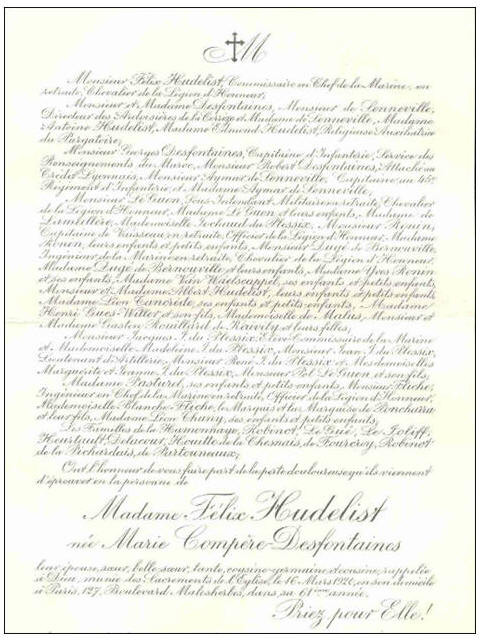 M
Monsieur Félix Hudelist, Commissaire en Chef de la Marine, en
retraite, Chevalier de la Légion d'Honneur,
Monsieur et Madame Desfontaines, Monsieur de Lenneville,
Directeur des Ardoisières de la Corrèze et Madame de Lenneville, Madame
Antoine Hudelist, Madame Edmond Hudelist, Religieuse Auxiliatrice
du Purgatoire,
Monsieur Georges Desfontaines, Capitaine d'Infanterie, Service des
Renseignements du Maroc, Monsieur Robert Desfontaines, Attaché au
Crédit Lyonnais, Monsieur Aymar de Lenneville, Capitaine au 45e
Régiment d'Infanterie, et Madame Aymar de Lenneville,
Monsieur Le Guen, Sous Intendant Militaire en retraite, Chevalier
de la Légion d'Honneur, Madame Le Guen et leurs enfants, Madame de
Mademoiselle Jochaud du Plessix, Monsieur Renin,
Capitaine de Vaisseau en retraite, Officier de la Légion d'Honneur, Madame
Renin, leurs enfants et petits enfants, Monsieur Dugé de Bernouville,
Ingénieur de la Marine en retraite, Chevalier de la Légion d'Honneur,
Madame Dugé de Bernouville et leurs enfants, Madame Yves Renin
et ses enfants, Madame Van ses enfants et petits enfants,
Monsieur et Madame Albert Hudelist, leurs enfants et petits enfants,
Madame Léon ses enfants et petits enfants, Madame
Henri et son fils, Mademoiselle de Monsieur et
Madame Gaston Rouillard de et leurs filles,
Monsieur Jacques J. du Plessix, Elève-Commissaire de la Marine
et Mademoiselle Madeleine J. du Plessix, Monsieur Jean J. du Plessix,
Lieutenant d'Artillerie, Monsieur René J. du Plessix et Mesdemoiselles
Marguerite et Jeanne J. du Plessix, Monsieur Pol Le Guen et son fils,
Madame Pasturel, ses enfants et petits enfants, Monsieur Fliche,
Ingénieur en Chef de la Marine en retraite, Officier de la Légion d'Honneur,
Mademoiselle Blanche Fliche, le Marquis et la Marquise de Poncharra
et leur fils, Madame Léon ses enfants et petits enfants,
Les Familles de la Hamonnaye, Robinot Le Gué, Le Joliff,
Heurtault Delacour, Houitte de la Chesnais, de Fourcroy, Robinot
de la Pichardais, de Partouneaux,
Ont l'honneur de vous faire part de la perte douloureuse qu'ils viennent
d'éprouver en la personne de
Madame Félix Hudelist
née Marie Compère-Desfontaines
leur épouse, sœur, belle-sœur, tante, cousine-germaine et cousine, rappelée
à Dieu, munie des Sacrements de l'Eglise, le 16 Mars 1920, en son domicile
à Paris, 127, Boulevard Malesherbes, dans sa 61ème année.
Priez pour Elle!